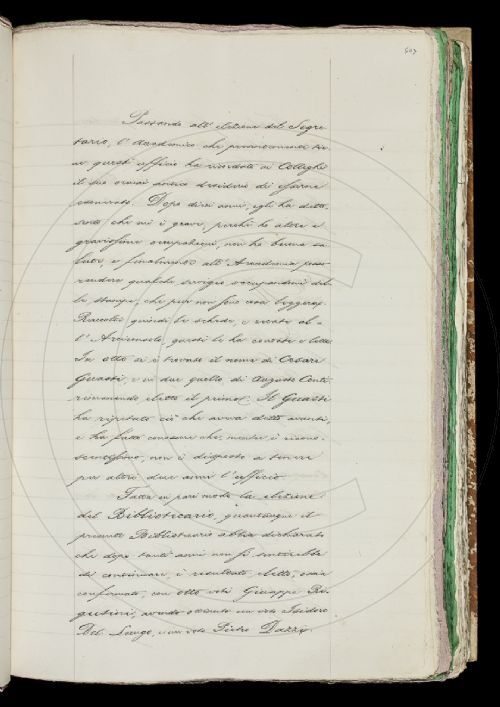 507
Passando all' elezione del Segre
tario, l' Accademico che presentemente tie
ne questo officio ha ricordato ai Colleghi
il suo ormai antico desiderio di esserne
esonerato. Dopo dieci anni, egli ha detto,
sento che mi è grave, perchè ho altre e
gravissime occupazioni, non ho buona sa
lute, e finalmente all' Accademia posso
rendere qualche servigio occupandomi del
la stampa, che pur non è cosa leggera.
Raccolte quindi le schede, e recate al
l' Arciconsolo, questi le ha contate e lette.
In otto si è trovato il nome di Cesare
Guasti, e in due quello di Augusto Conti
rimanendo eletto il primo. Il Guasti
ha ripetuto ciò che aveva detto avanti,
e ha fatto conoscere che, mentre è ricono-
scentissimo, non è disposto a tenere
per altri due anni l' officio.
Fatta in pari modo la elezione
del Bibliotecario, quantunque il
presente Bibliotecario abbia dichiarato
che dopo tanti anni non si sentirebbe
di continuare, è resultato eletto, ossia
confermato, con otto voti Giuseppe Ri
gutini, avendo ottenuto un voto Isidoro
Del Lungo, e un voto Pietro Dazzi.